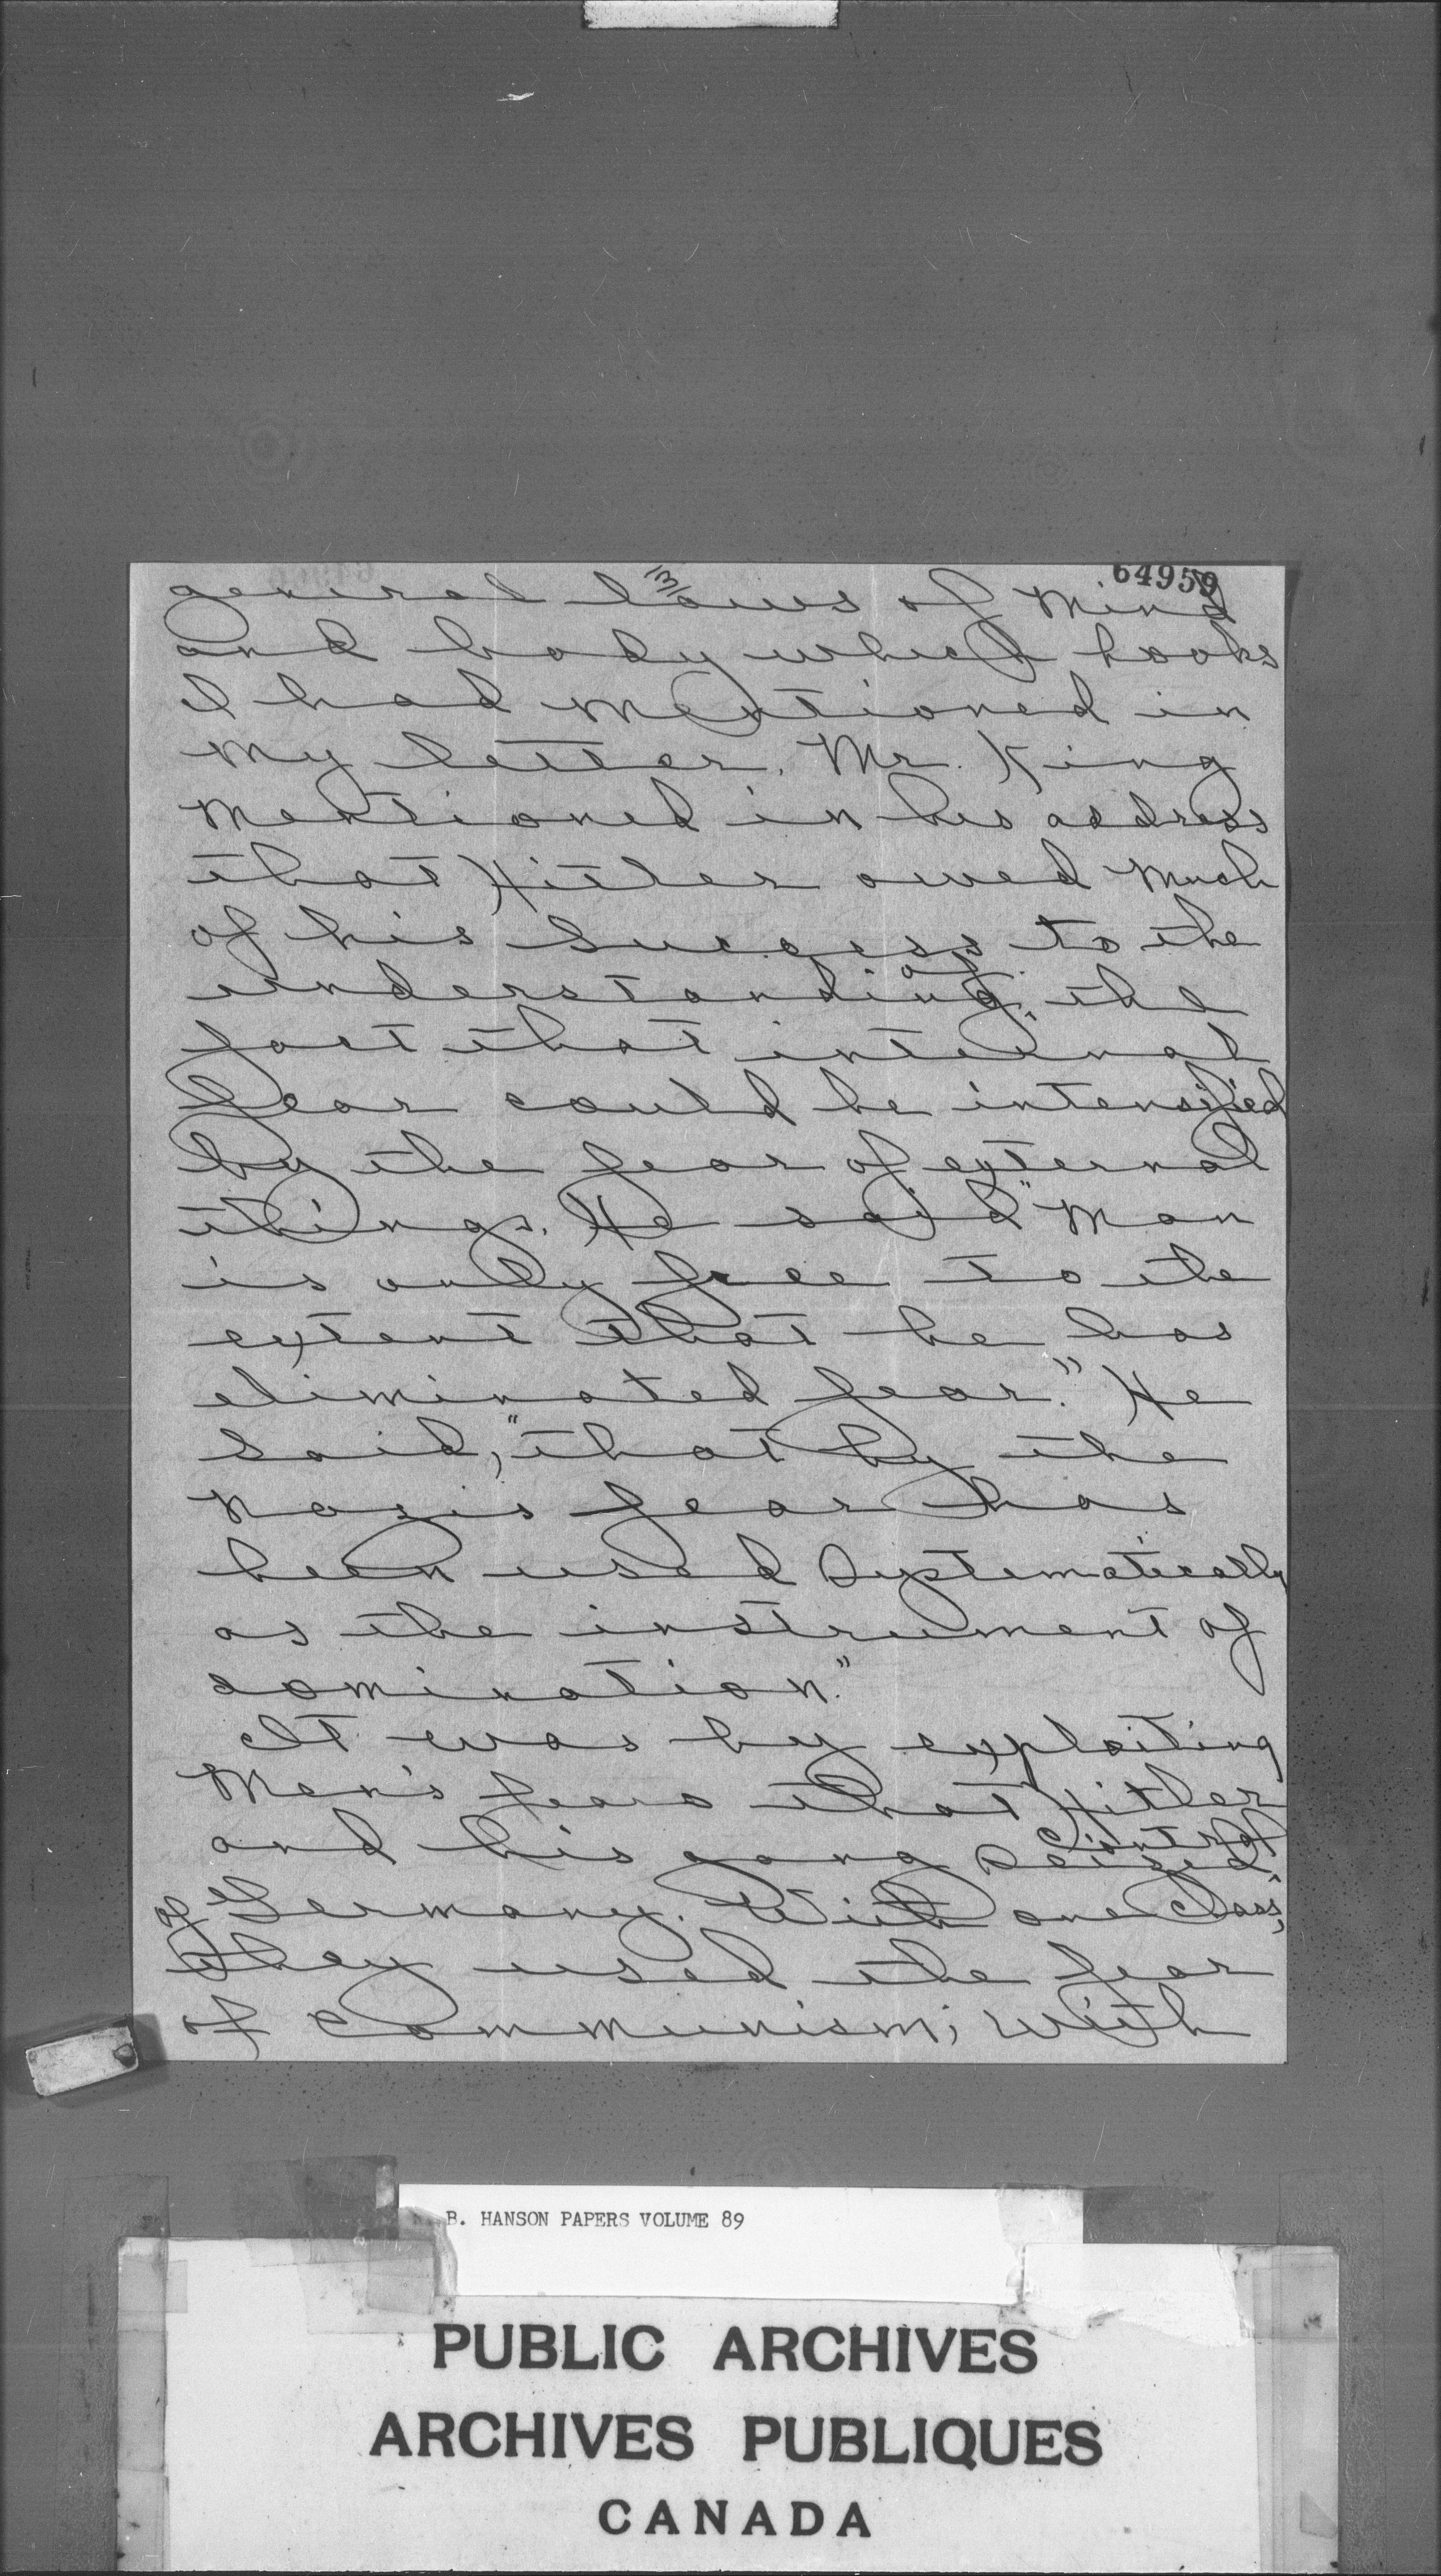 13
64959
general laws of Mind
and body which books
I had Mentioned in
My letter. Mr. King
Mentioned in his address
that Hitler owed Much
of his Success to the
of
understanding the
fact that internal
fear could be intensified
by the fear of external
things. He said "Man
is only free to the
extent that he has
eliminated fear." He
Said, "that by the
Nazis fear has
been used Systematically
as the instrument of
domination."
It was by exploiting
Men's fears that Hitler
control
and his gang Seized
of Germany. With one Class,
they used the fear
of Communism; With
B. HANSON PAPERS VOLUME 89
PUBLIC ARCHIVES
ARCHIVES PUBLIQUES
CANADA